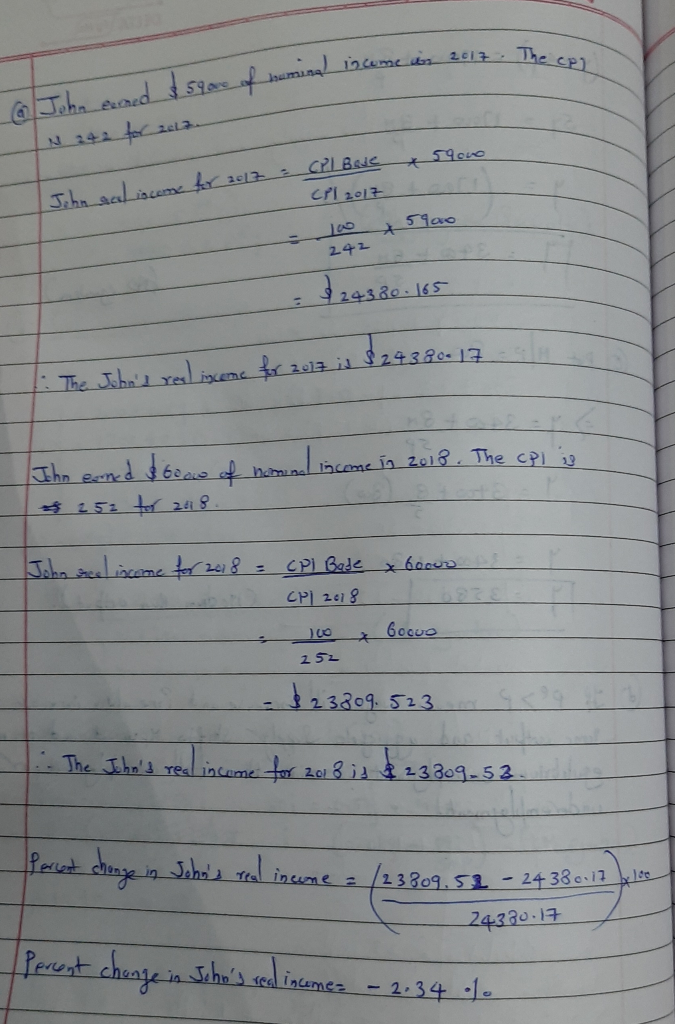 ⓐ John earned $59000 of nominal income in 2017. The CPI
is 242 for 2017.
John real income for 2017 = CPI Base / CPI 2017 × 59000
= 100 / 242 × 59000
= $24380.165
∴ The John's real income for 2017 is $24380.17
John earned $60000 of nominal income in 2018. The CPI is
252 for 2018.
John real income for 2018 = CPI Base / CPI 2018 × 60000
= 100 / 252 × 60000
= $23809.523
∴ The John's real income for 2018 is $23809.52.
Percent change in John's real income = (23809.52 - 24380.17 / 24380.17) × 100
Percent change in John's real income = - 2.34 %